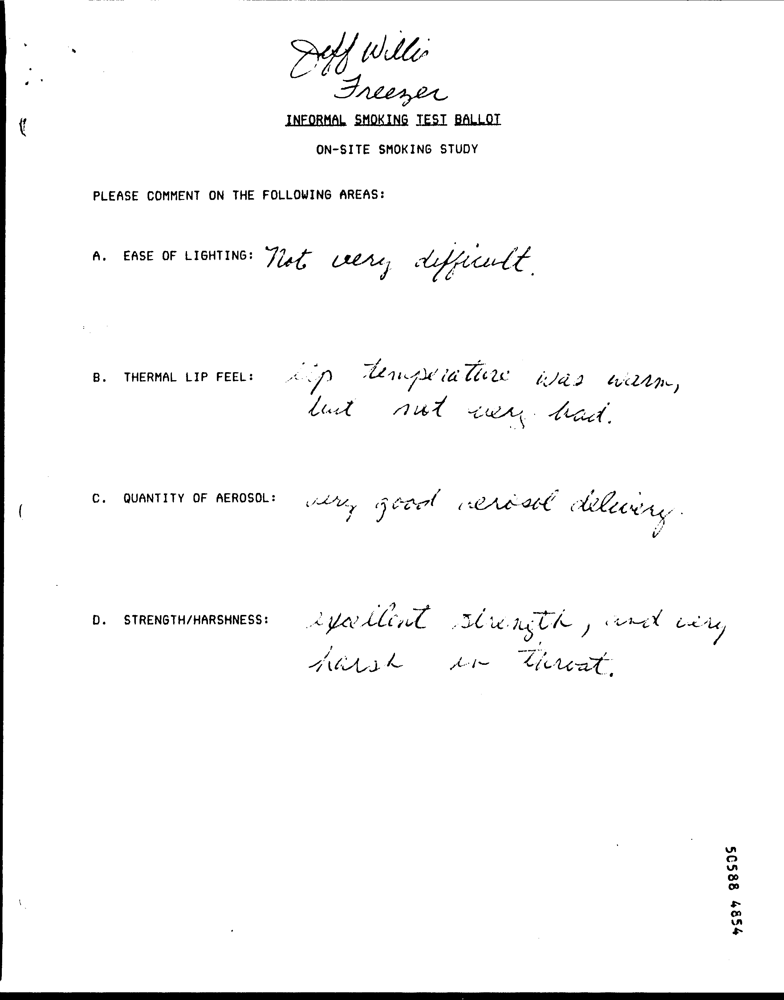 Jeff Willis
Freezer
INFORMAL SMOKING TEST BALLOT
ON-SITE SMOKING STUDY
PLEASE COMMENT ON THE FOLLOWING AREAS:
A. EASE OF LIGHTING: Not very difficult.
B. THERMAL LIP FEEL: lip temperature was warm,
but not very bad.
C. QUANTITY OF AEROSOL: very good aerosol delivery.
D. STRENGTH/HARSHNESS: excellent strength, and very
harsh in throat.
50588 4854